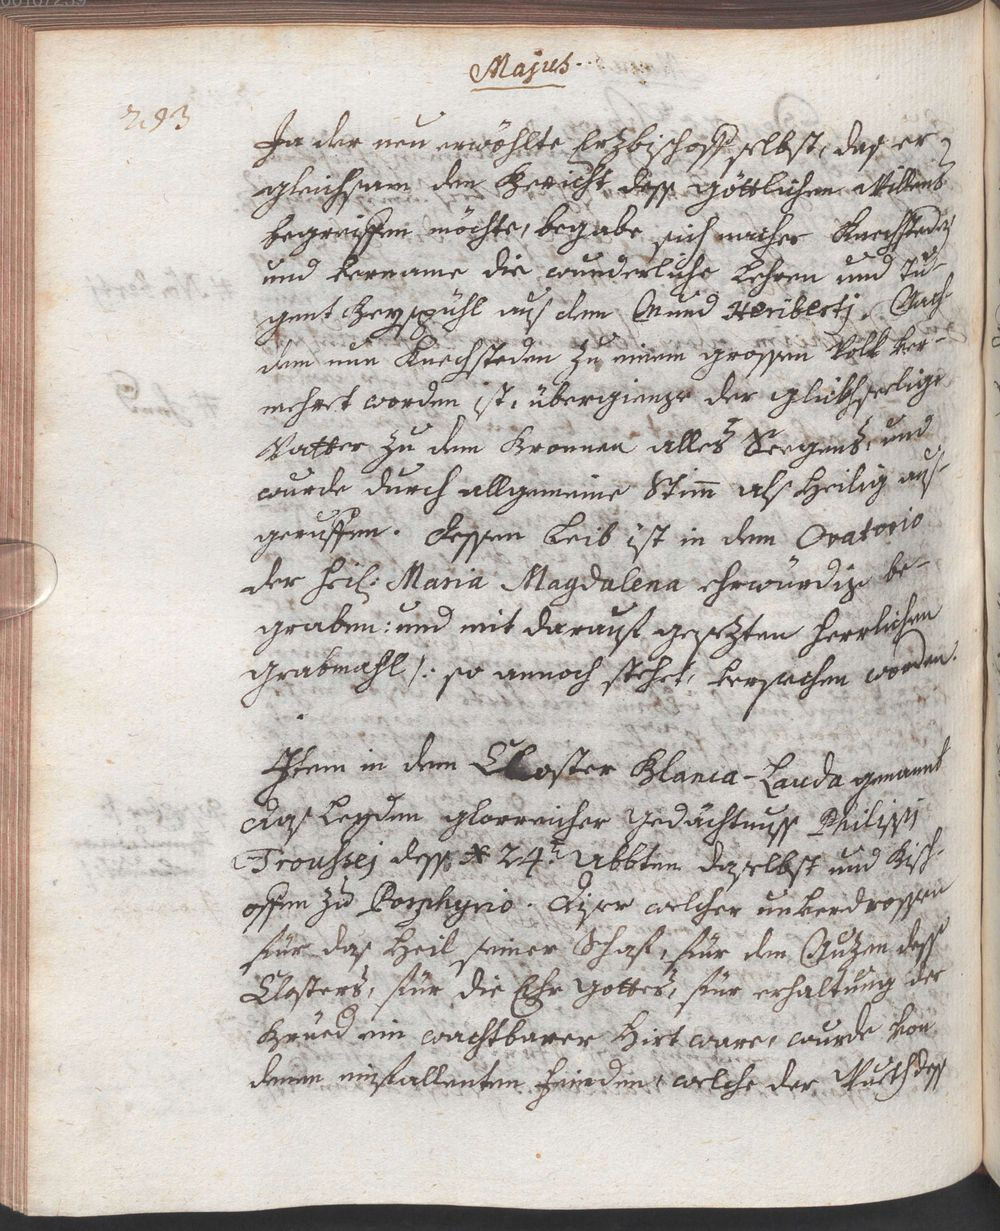 Majus.
293
Ja der neu erwöhlte Erzbischoff selbst, das er
gleichsam den Bericht dess göttlichen Willens
begreiffen möchte, begabe sich nacher Knechsteden
und vername die wunderliche Lehren und Tu-
gent Beyspühl aus dem Mund Heriberti. Nach-
dem nun Knechsteden zu einem grossen Volk ver-
mehret worden ist, übergienge der glükhseelige
Vatter zu dem Bronnen alles Seegens, und
wurde durch allgemeine Stim als Heilig aus-
geruffen. dessen Leib ist in dem Oratorio
der heil: Maria Magdalena ehrwürdig be-
graben: und mit darauf gesezten herrlichen
grabmahl /: so annoch stehet, versechen worden.
Item in dem Closter Blanca-Lauda genannt
das Leyden glorreicher gedächtnuss Philippi
Troussej dess 24t Abbten daselbst und Bisch-
offen zu Porphyrio. diser welcher unverdrossen
für das Heil seiner Schaf, für den Nuzen dess
Closters, für die Ehr gottes, für erhaltung der
Brüed ein wachtbarer Hirt ware, wurde von
denen einfallenten feinden, welche der Wueth dess